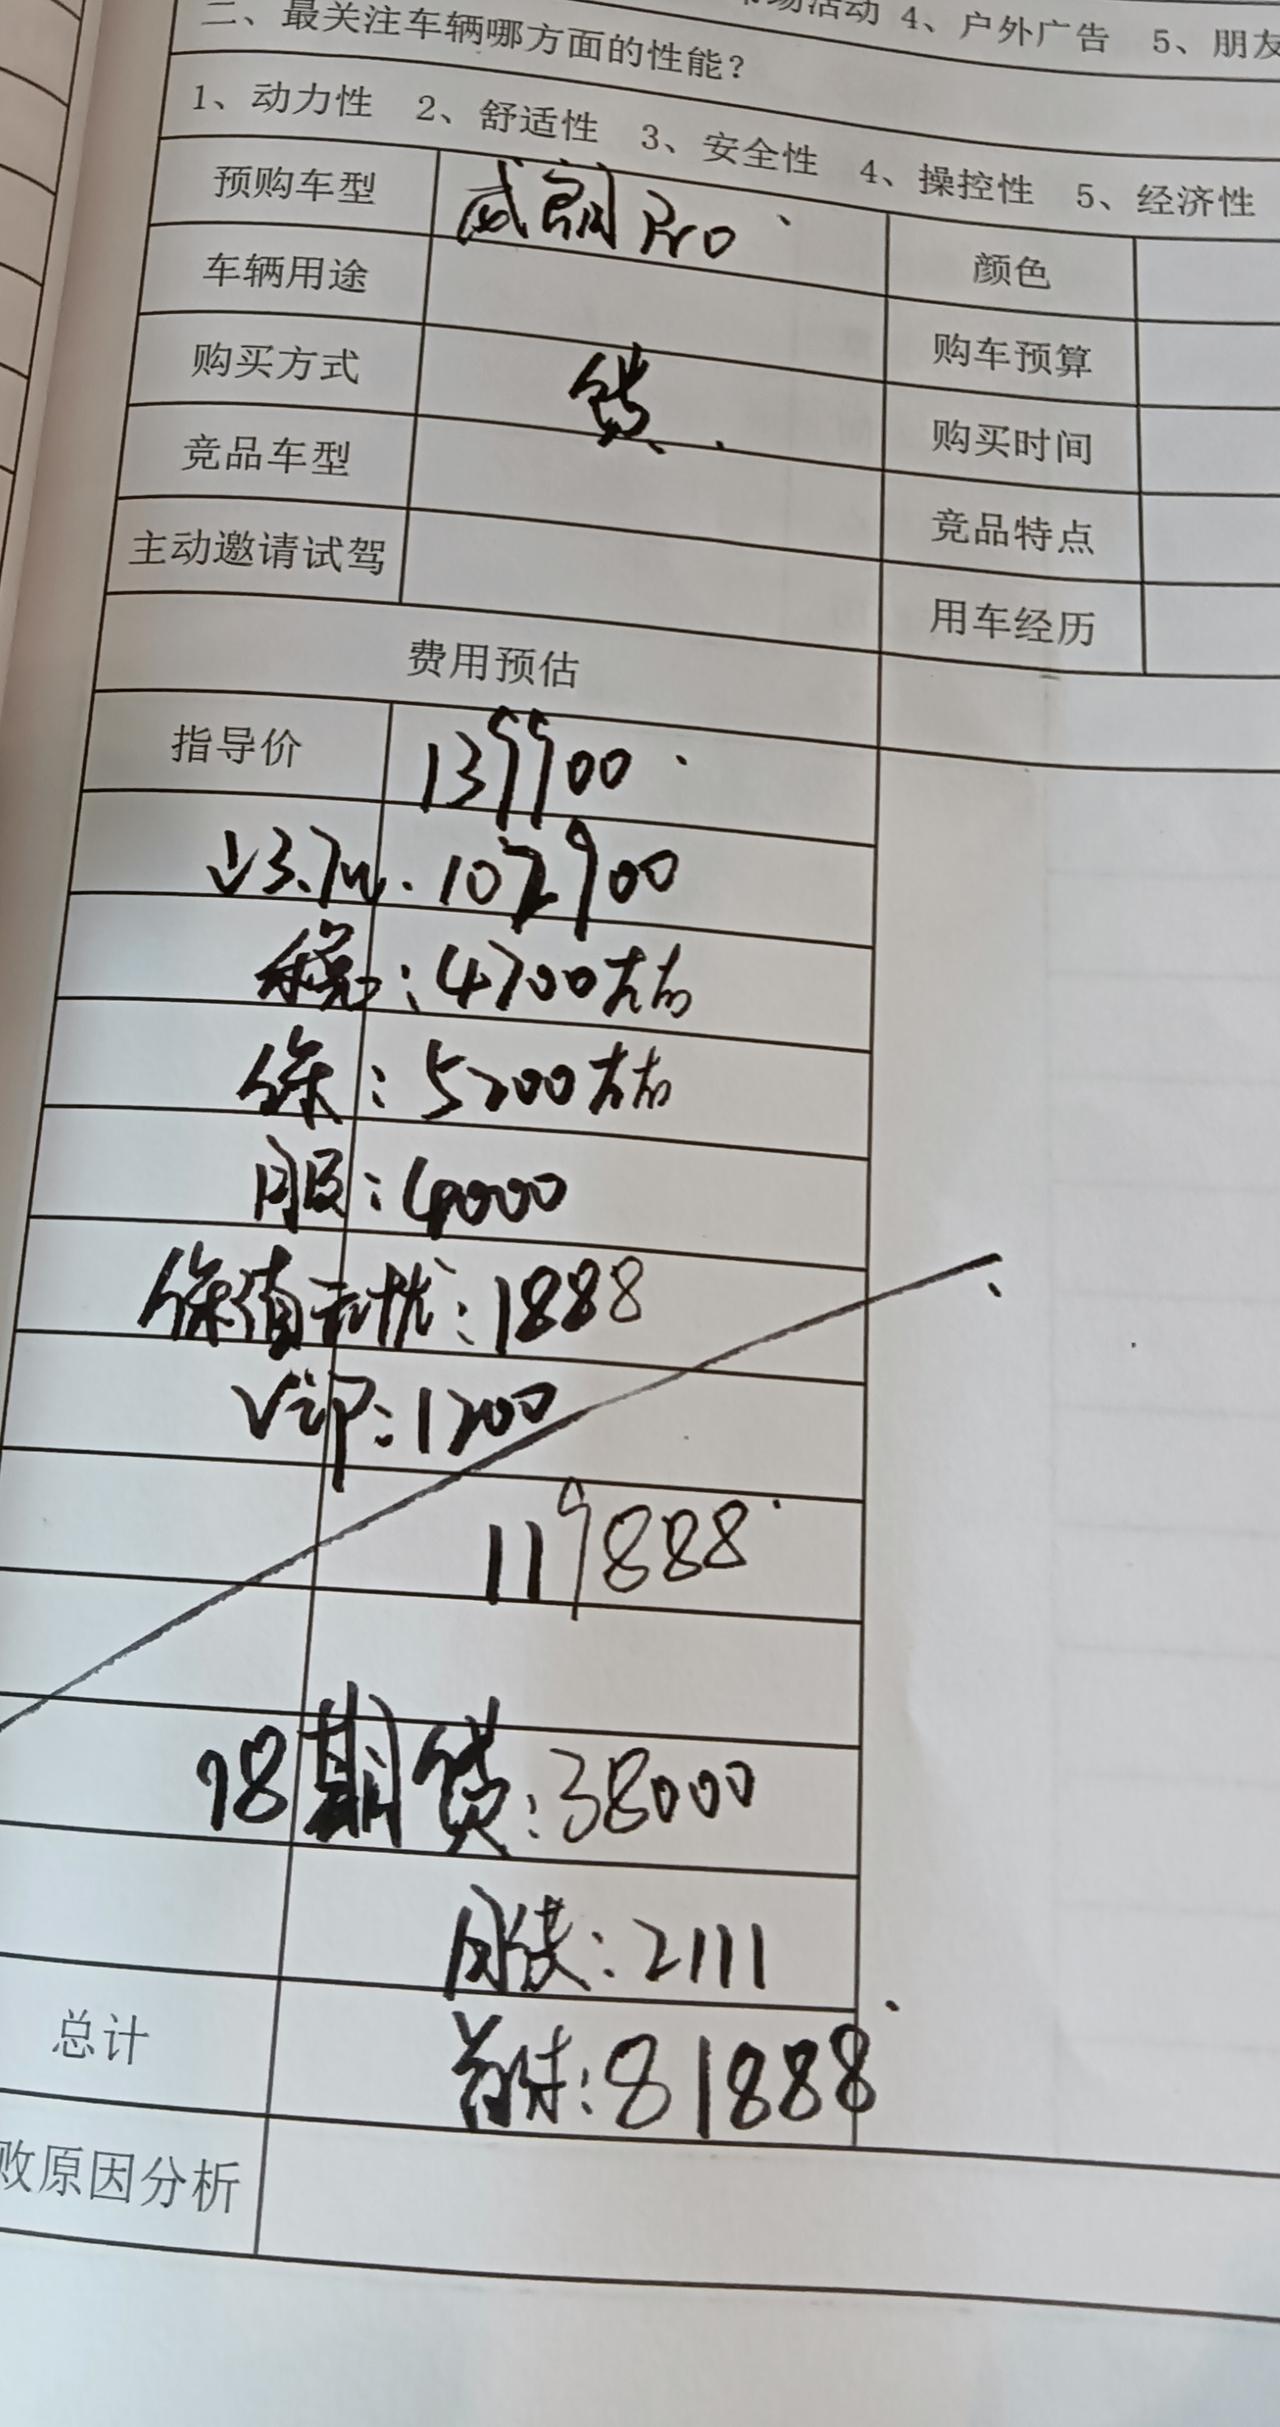 市场活动 4、户外广告 5、朋友
二、最关注车辆哪方面的性能？
1、动力性 2、舒适性 3、安全性 4、操控性 5、经济性
预购车型 威朗Pro 颜色
车辆用途 购车预算
购买方式 贷 购买时间
竞品车型 竞品特点
主动邀请试驾 用车经历
费用预估
指导价 139900
↓3.7w. 102900
税:4700左右
保:5200左右
服:4000
保值无忧:1888
V证P:1200
119888
18期贷:38000
月供:2111
总计 首付:81888
败原因分析